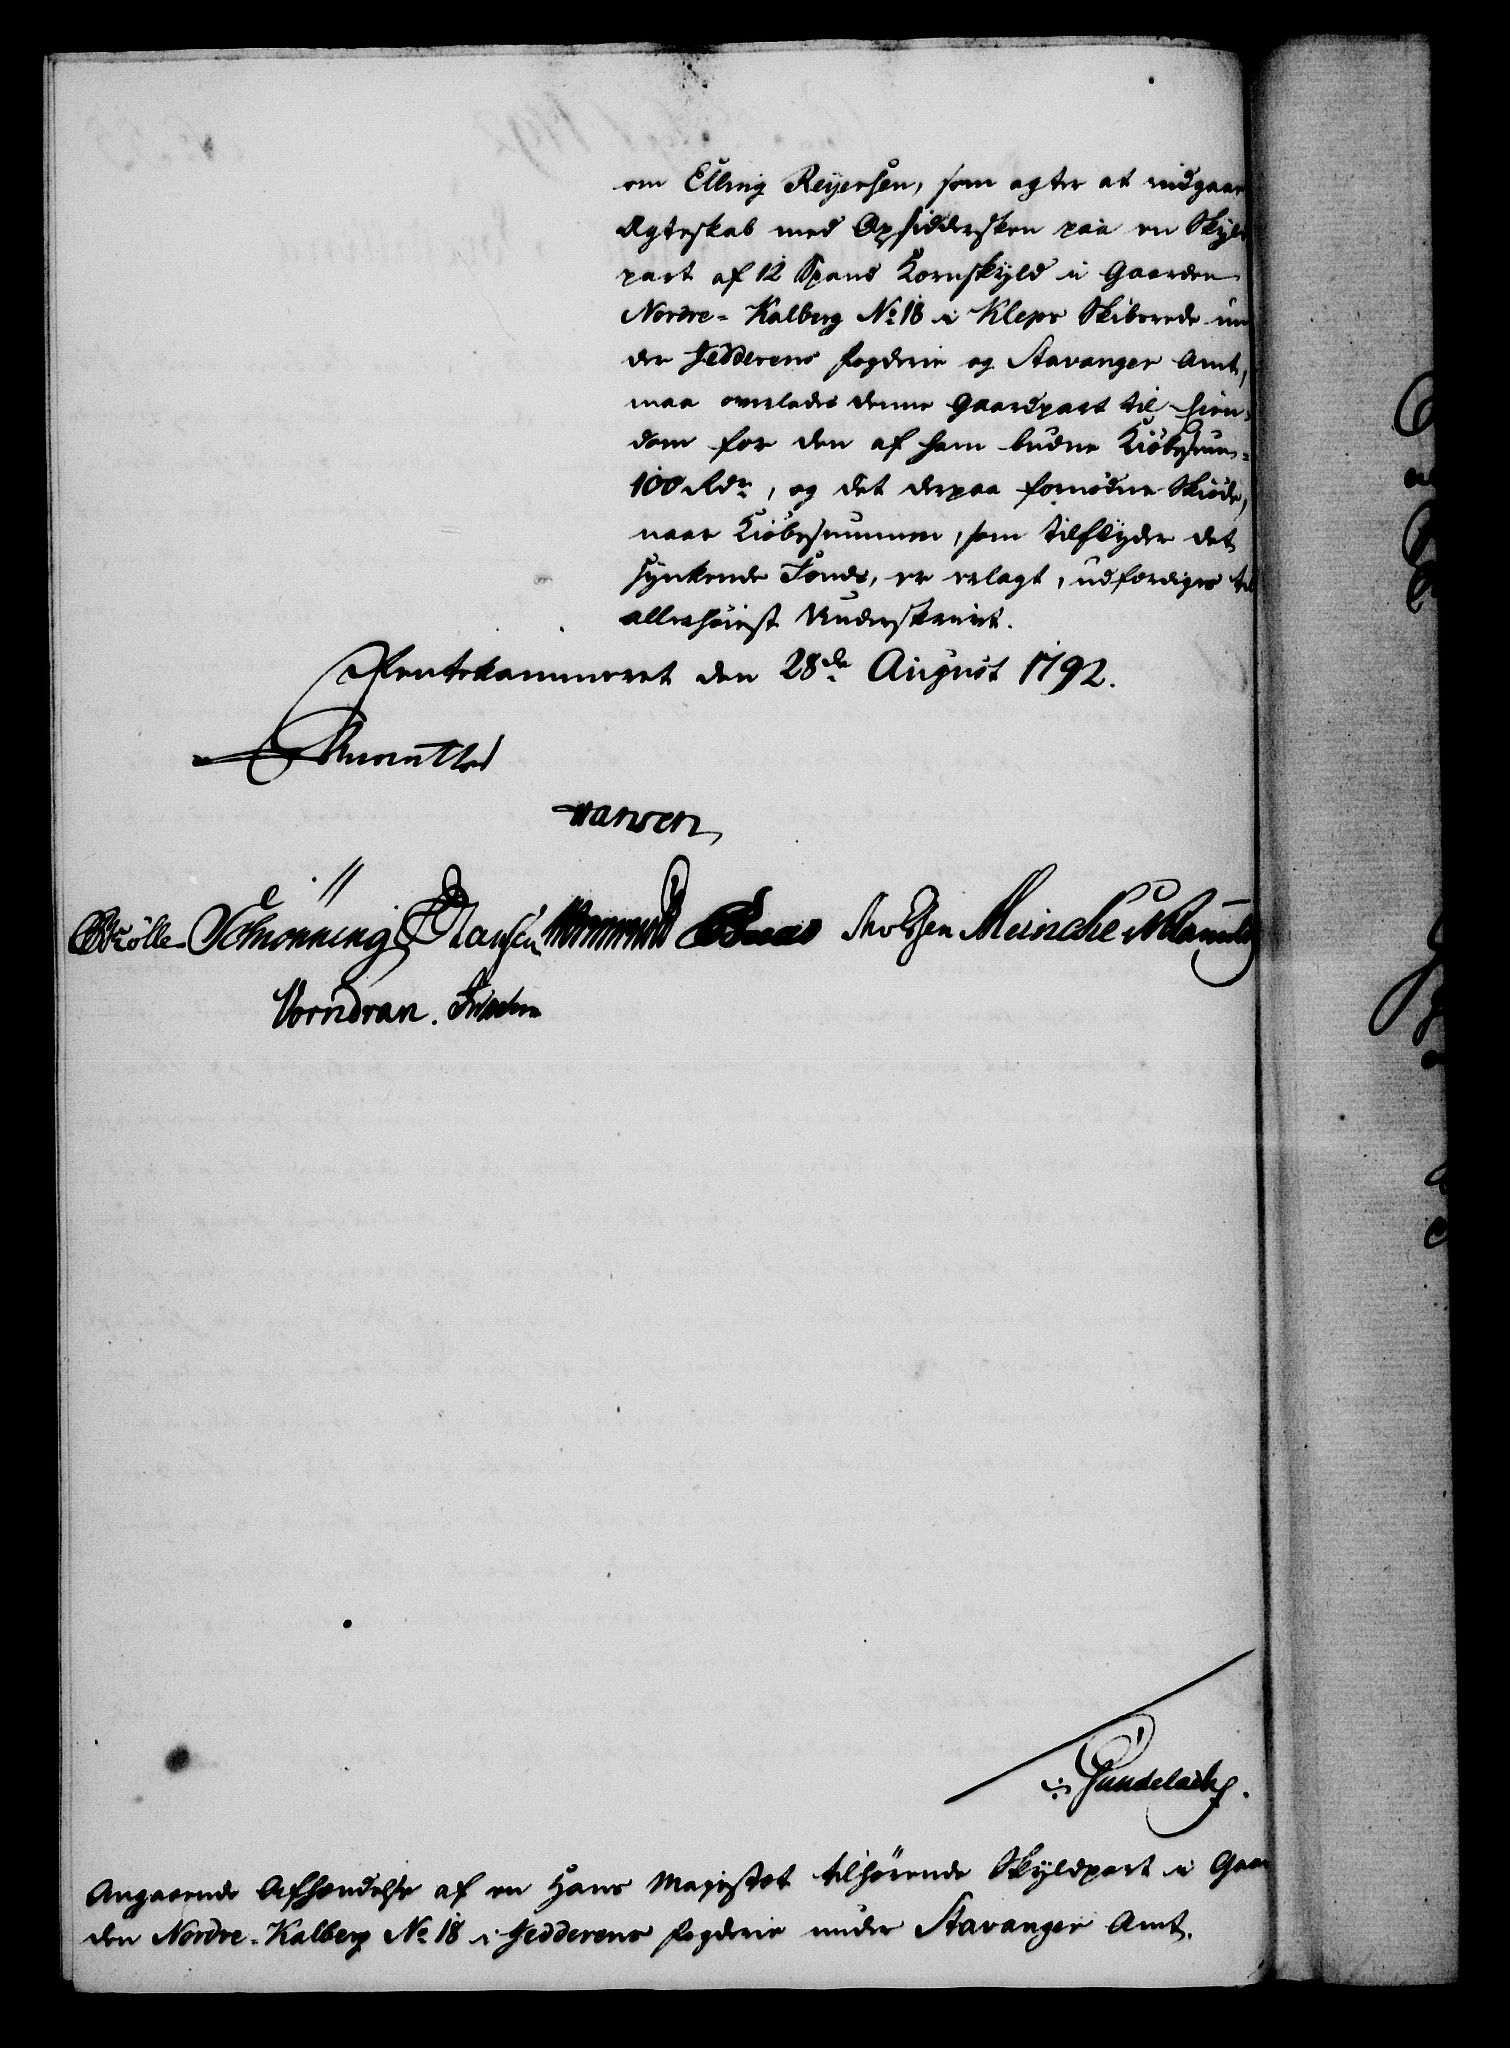 om Elling Reyersen, som agter at indgaae
Ægteskab med Opsiddersken paa en Skyld
part af 12 Spand Kornskyld i Gaarden
Nordre-Kalberg No 18 i Kleps Skibrede un
der Jedderens Fogderie og Stavanger Amt,
maa overlades denne Gaardpart til Eien-
dom for den af ham budne Kiöbesum
100 Rdr, og det derpaa fornödne Skiöde,
naar Kiöbesummen, som tilflyder det
synkende Fonds, er erlagt, udfærdiges til
allerhöiest Underskrivt.
Rentekammeret den 28de August 1792.
Schönning Hansen Moltzen Meincke
Vorndran.
Gundelach.
Angaaende Afhændelse af en Hans Majestæt tilhörende Skyldpart i Gaar
den Nordre-Kalberg No 18 i Jedderens Fogderie under Stavanger Amt.